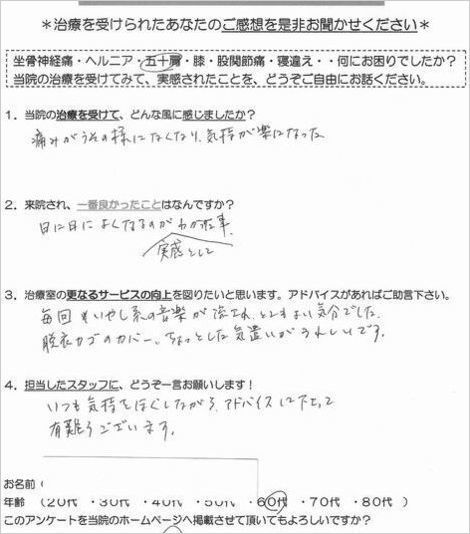 ＊治療を受けられたあなたのご感想を是非お聞かせください＊
坐骨神経痛・ヘルニア・五十肩・膝・股関節痛・寝違え・・何にお困りでしたか？
当院の治療を受けてみて、実感されたことを、どうぞご自由にお話ください。
1．当院の治療を受けて、どんな風に感じましたか？
痛みがうその様になくなり、気持が楽になった
2．来院され、一番良かったことはなんですか？
日に日によくなるのがわかった事。
実感として
3．治療室の更なるサービスの向上を図りたいと思います。アドバイスがあればご助言下さい。
毎回 いやし系の音楽が流され、とてもよい気分でした。
脱衣カゴのカバー、ちょっとした気遣いがうれしいです。
4．担当したスタッフに、どうぞ一言お願いします！
いつも気持をほぐしながら、アドバイス下さって
有難うございます。
お名前（
年齢 （20代 ・30代 ・40代 ・50代 ・60代 ・70代 ・80代 ）
このアンケートを当院のホームページへ掲載させて頂いてもよろしいですか？